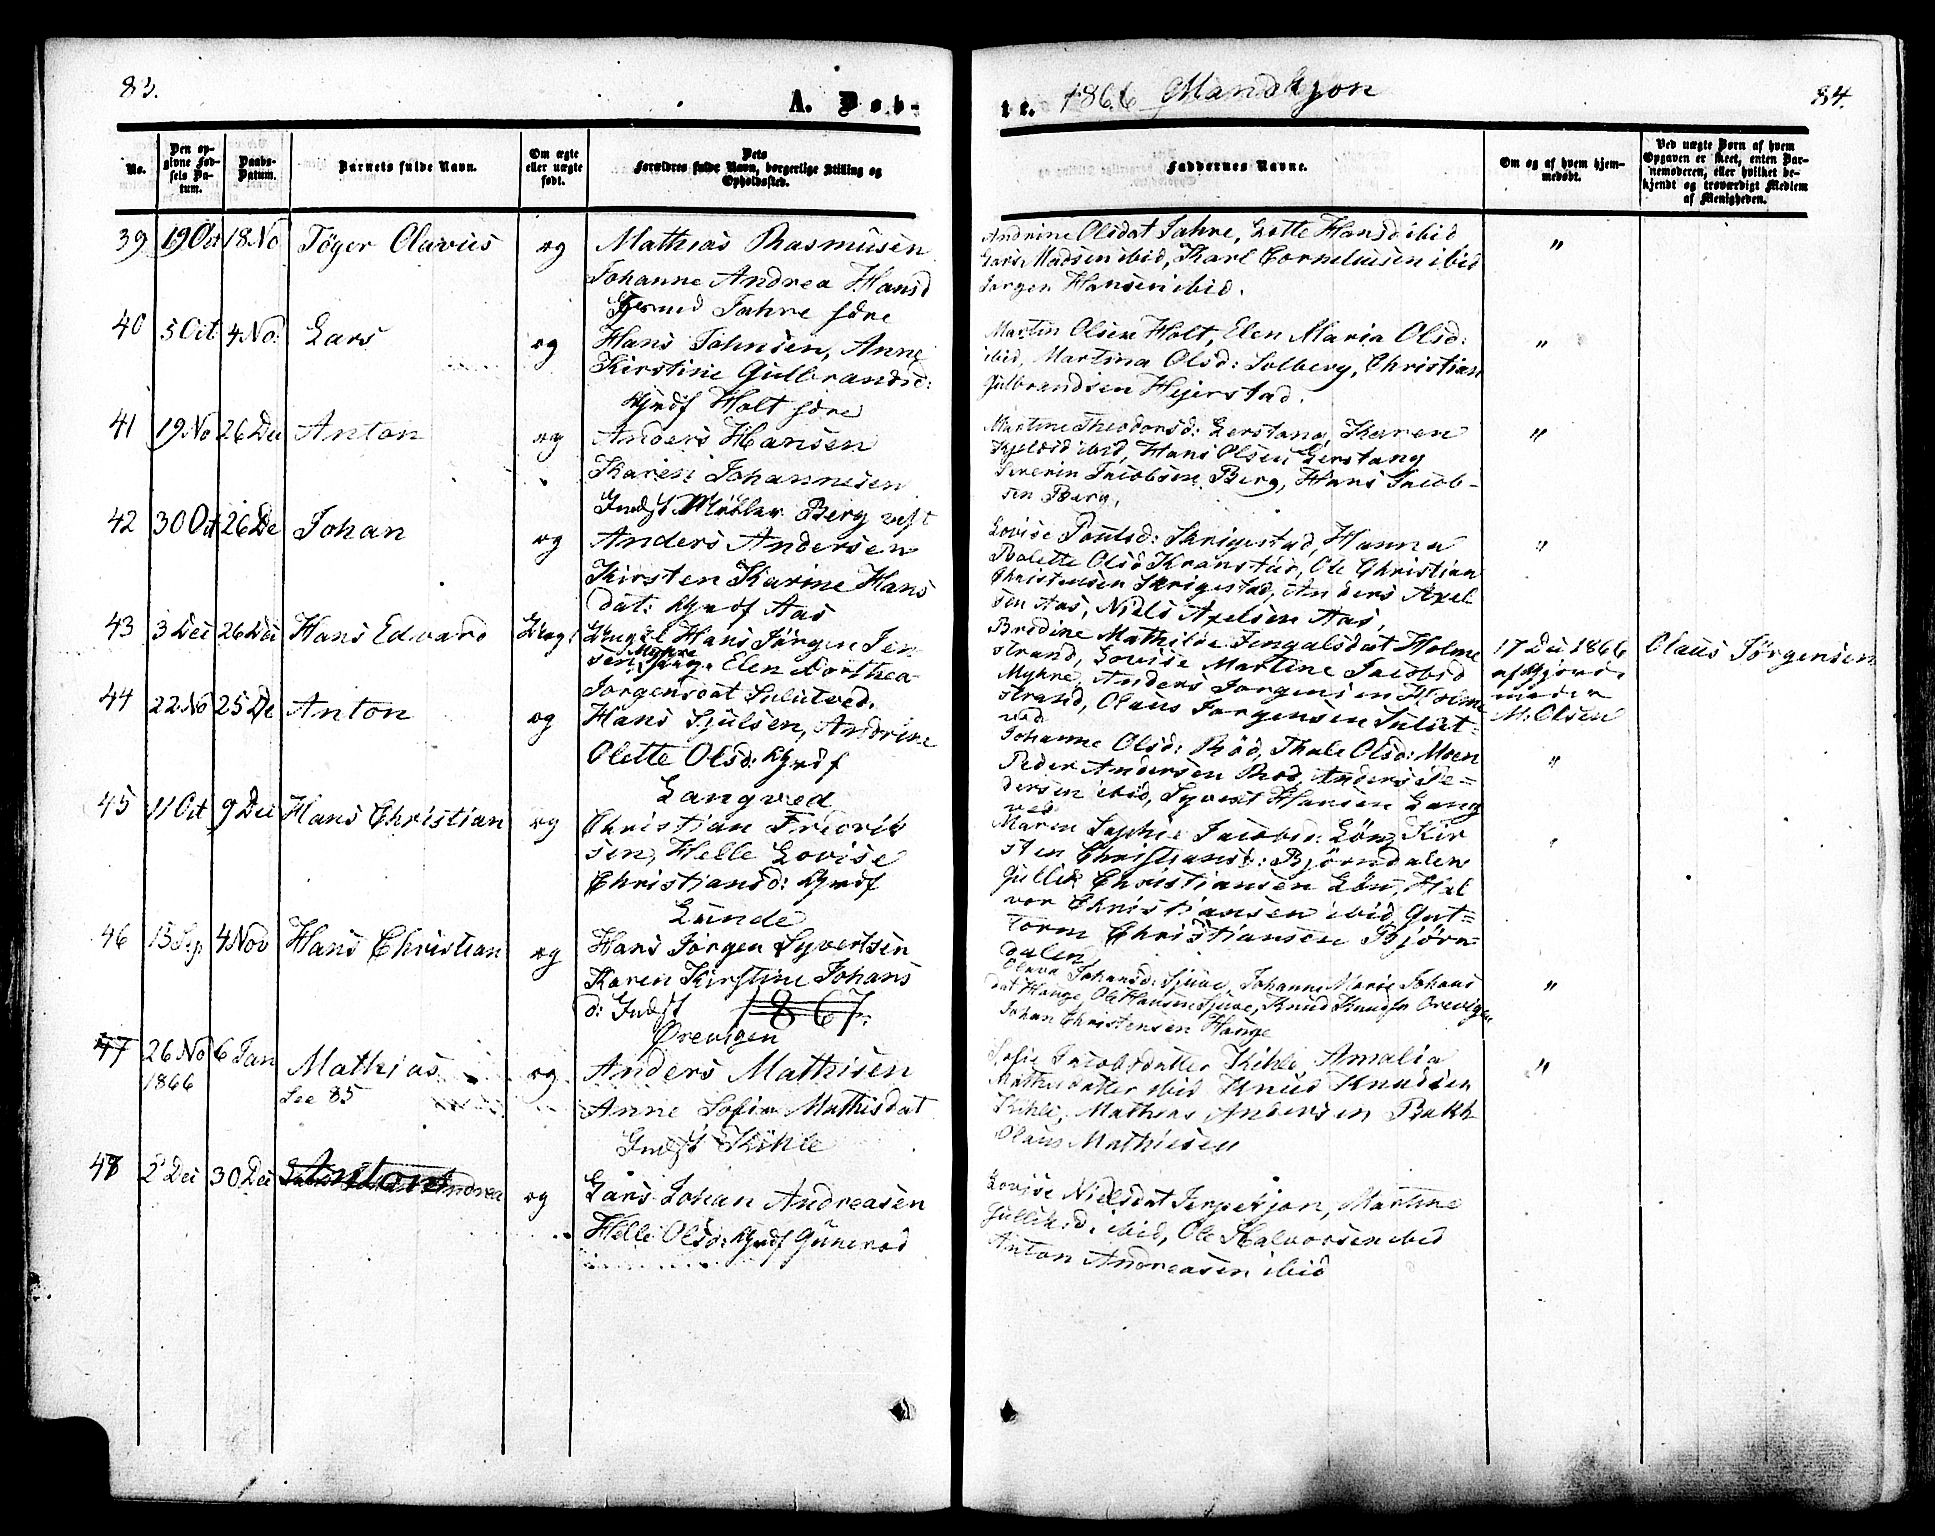 83.
A. Døb-
te.
1866 Mandkjøn
84.
No.
Den op-
givne Fød-
sels Da-
tum.
Daabs-
Datum.
Barnets fulde Navn.
Om ægte
eller uægte
født.
Dets
Forældres fulde Navn, borgerlige Stilling og
Opholdssted.
Faddernes Navne.
Om og af hvem hjem-
medøbt.
Ved uægte Børn af hvem
Opgaven er skeet, enten Bar-
nemoderen, eller hvilket be-
kjendt og troværdigt Medlem
af Menigheden.
39 19 Oct 18 No Töger Olavius æg Mathias Rasmusen
Johanne Andrea Hansd
Jahre søre
Andrine Olsdat Jahre, Lotte Hansd ibid
Lars Madsen ibid, Karl Corneliusen ibid
Jørgen Hansen ibid.
"
40 5 Oct 4 No Lars æg Hans Johnsen, Anne
Kirstine Gulbrandsd:
Grdf Holt søre
Martin Olsen Holt, Elen Maria Olsd:
ibid, Martina Olsd: Solberg, Christian
Gulbrandsen Hejerstad.
"
41 19 No 26 Dec Anton æg Anders Hansen
Karen Johannesen
Indst Berg vest
Martine Theodorsd: Gerstang, Karen
ibid, Hans Olsen Gerstang
Severin Jacobsen Berg, Hans Jacob-
sen Berg,
"
42 30 Oct 26 De Johan æg Anders Andersen
Kirsten Karine Hans
dat: Grdf Aas
Lovise Poulsd: Skrigestad, Hanna
Bolette Olsd Kranstad, Ole Christian
Christensen Skrigestad, Anders Axel
sen Aas, Niels Axelsen Aas,
"
43 3 Dec 26 Dec Hans Edvard Uæg: Ungkl Hans Jörgen Jen
sen Myhre Pige. Elen Dorthea
Jorgensdat Sulutved.
Bredine Mathilde Jengalsdat Holme
strand, Lovise Martine Jacobsd
Myhre, Anders Jorgensen Holme
strand, Olaus Jorgensen Sulut-
ved
17 Dec 1866
af Gjorde
moder
M. Olsen
Olaus Jörgensen
44 22 No 25 De Anton æg Hans Sjulsen, Andrine
Olette Olsd: Grdf
Langved
Johanne Olsd: Röd, Thale Olsd: Moen
Peder Andersen Rod, Anders Pe-
dersen ibid, Syvert Hansen Lang
ved
"
45 11 Oct 9 Dec Hans Christian æg Christian Fredrik
sen, Helle Lovise
Christiansd: Grdf
Lunde
Maren Sophie Jacobsd: Lön, Kir
sten Christiansd: Bjørndalen
Gullik Christiansen Lön, Hal
vor Christiansen ibid, Gut-
torm Christiansen Bjørn
dalen
"
46 13 Sep. 4 Nov Hans Christian æg Hans Jørgen Syvertsen
Karen Kirstine Johans
d: Indst 1867.
Ørevigen
Olava Johansd: Sjuve, Johanne Marie Johans
dat Hauge, Ole Hansen Sjuve, Knud Knudsn Orevigen
Johan Christensen Hauge
"
47 26 No 6 Jan Mathias æg Anders Mathisen
1866
See 85
Anne Sofie Mathisdat
Indst Kihle
Sofie Jacobsdatter Kihle, Amalia
Mathisdatter ibid Knud Knudsen
Kihle, Mathias Andersen Bakk
Olaus Mathiesen
"
48 2 Dec 30 Dec Anton Andrea æg Lars Johan Andreasen
Helle Olsd: Grdf Gunerød
Lovise Nielsdat Jerpekjøn, Martine
Gulliksd. ibid, Ole Halvorsen ibid
Anton Andreasen ibid